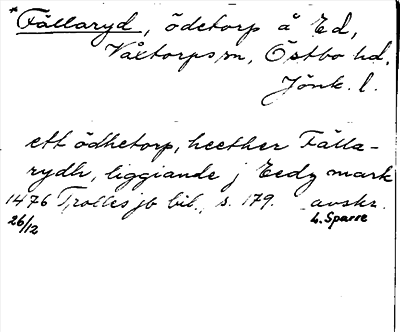 *Fällaryd, ödetorp å Ed,
Våxtorps sn, Östbo hd,
Jönk. l.
ett ödhetorp, heether Fälla-
rydh, liggiande j Eedz mark
1476 Trolles jb bil., s. 179. avskr.
26/12 L. Sparre